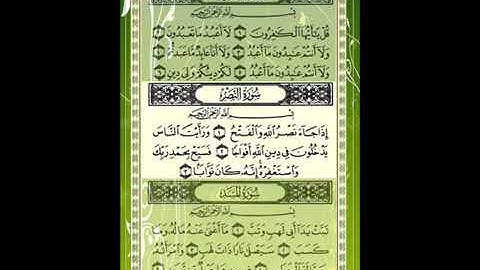 بِسْمِ اللَّهِ الرَّحْمَٰنِ الرَّحِيمِ
قُلْ يَٰٓأَيُّهَا ٱلْكَٰفِرُونَ ١ لَآ أَعْبُدُ مَا تَعْبُدُونَ ٢
وَلَآ أَنتُمْ عَٰبِدُونَ مَآ أَعْبُدُ ٣ وَلَآ أَنَا۠ عَابِدٌ مَّا عَبَدتُّمْ ٤
وَلَآ أَنتُمْ عَٰبِدُونَ مَآ أَعْبُدُ ٥ لَكُمْ دِينُكُمْ وَلِىَ دِينِ ٦
سُورَةُ النَّصْرِ
بِسْمِ اللَّهِ الرَّحْمَٰنِ الرَّحِيمِ
إِذَا جَآءَ نَصْرُ ٱللَّهِ وَٱلْفَتْحُ ١ وَرَأَيْتَ ٱلنَّاسَ
يَدْخُلُونَ فِى دِينِ ٱللَّهِ أَفْوَاجًا ٢ فَسَبِّحْ بِحَمْدِ رَبِّكَ
وَٱسْتَغْفِرْهُ إِنَّهُۥ كَانَ تَوَّابًۢا ٣
سُورَةُ المَسَد
بِسْمِ اللَّهِ الرَّحْمَٰنِ الرَّحِيمِ
تَبَّتْ يَدَآ أَبِى لَهَبٍ وَتَبَّ ١ مَآ أَغْنَىٰ عَنْهُ مَالُهُۥ وَمَا
كَسَبَ ٢ سَيَصْلَىٰ نَارًا ذَاتَ لَهَبٍ ٣ وَٱمْرَأَتُهُۥ